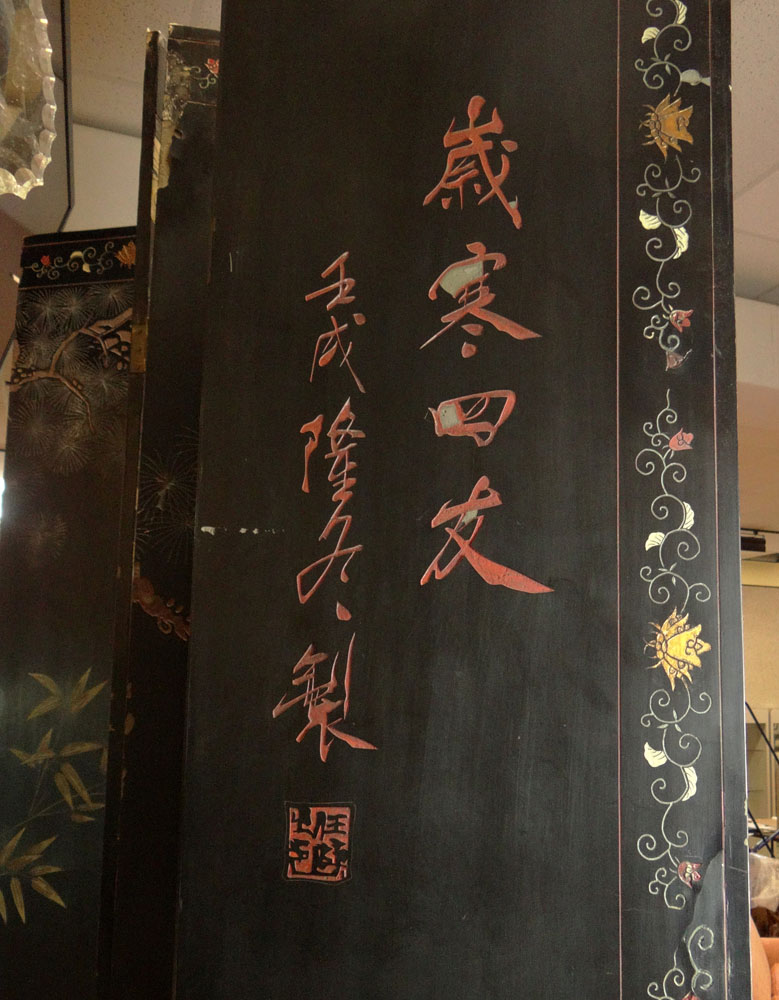 歲寒四友
壬戌隆冬製